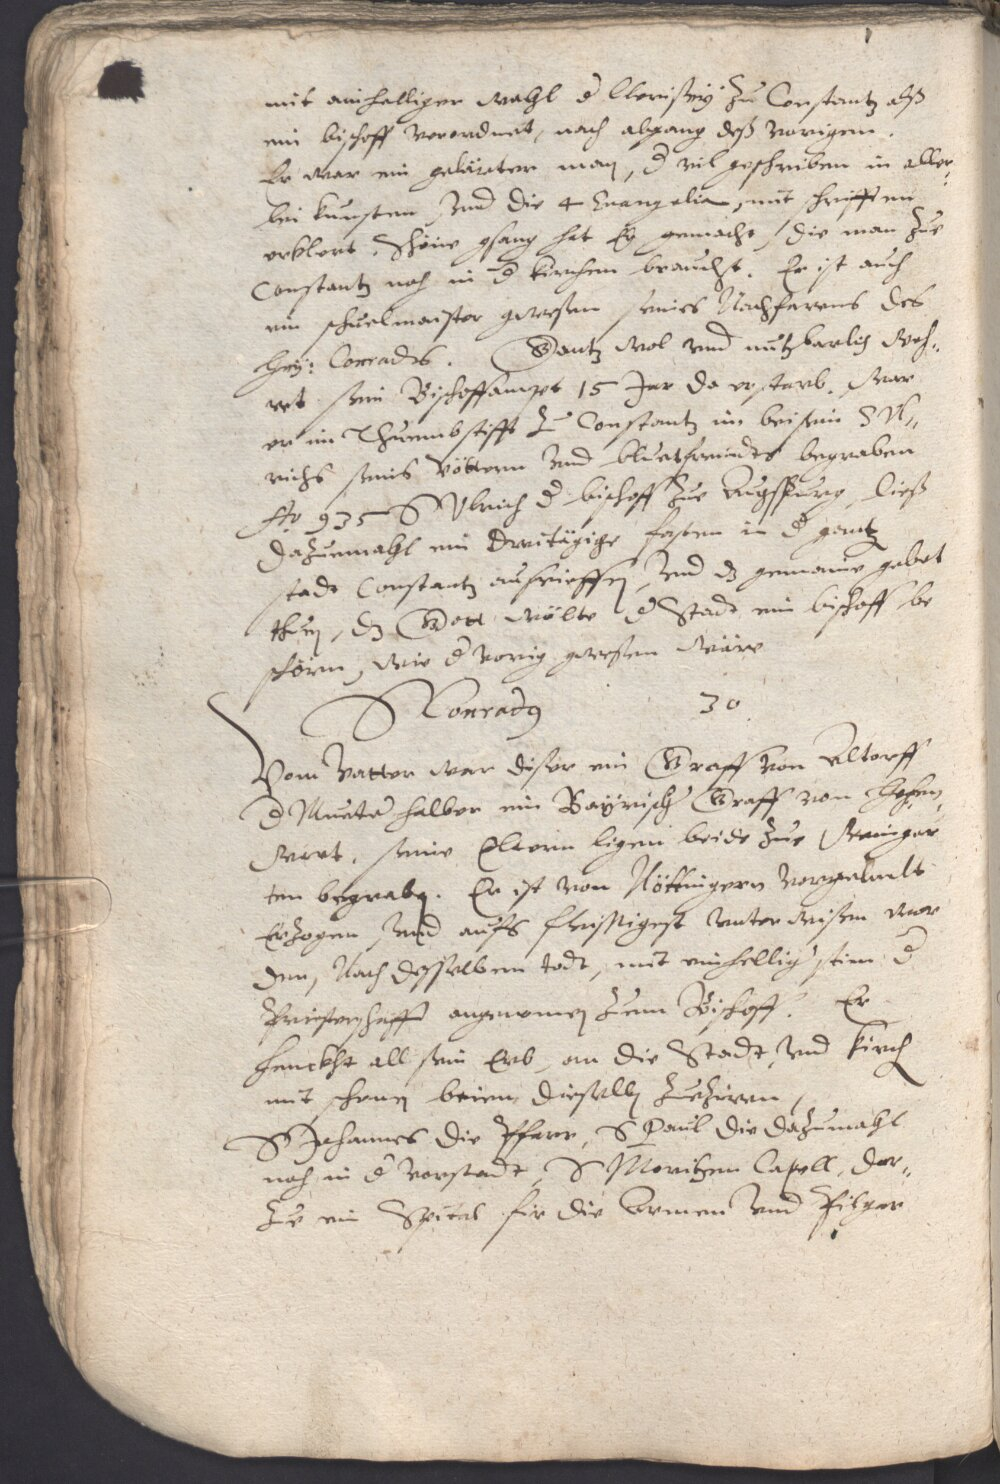 mit ainhelliger wahl d Clerisey zu Constantz alß
ein bischoff verordnet, nach abgang deß vorigenn.
Er war ein gelärter man, d vil geschriben in aller¬
lei kunsten, und die 4 Evangelia, mit schrifften
erklert. Schöne gsang hat Er gemacht, die man zue
Constantz noch in d kirchen braucht. Er ist auch
ein schuelmaister gewesen seines Nachfarens des
Hey: Conradts. Gantz wol und nutzbarlich weh¬
ret sein Bischoffampt 15 Jar da erstarb. War
er im Thuembstifft zu Constantz im beisein S Ul¬
richs seins Vöttern und bluetfreundts begraben
Ao 935 S Ulrich d bischoff zue Augspurg, ließ
dazuemahl ein dreitägige fasten in d gantz
stadt Constantz ausrieffen, und dz gemaine gebet
thuen, dz Gott wölte d Stadt ein bischoff be
schören, wie d vorig gewesen wäre
S Conradus 30
Vom Vatter war diser ein Graff von Altorff
d Mueter halber ein Bayrisch Graff von Hohen¬
wart. seine Eltern ligen beide zue Weingar
ten begraben. Er ist von Nöttingern vorgemelt
Erzogen, und aufs fleissigest underwisen wor
den, Nach desselben todt, mit einhellig stim d
Priesterschafft angenomen zum Bischoff. Er
schenckht all sein Erb an die Stadt und kirch
mit schonen beuen dieselb zueziren,
S Johannes die Pfarr, S Paul die dazumahl
noch in d vorstadt, S Moritzen Capell, dar¬
zue ein Spital für die Armen und Pilger